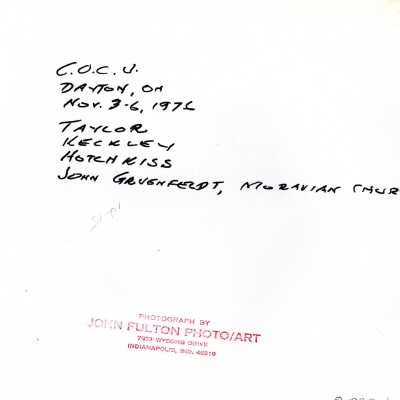 C.O.C.U.
DAYTON, OH
NOV. 3-6, 1976
TAYLOR
KECKLEY
HOTCHKISS
JOHN GRUENFELDT, MORAVIAN CHUR
PHOTOGRAPH BY
JOHN FULTON PHOTO/ART
INDIANAPOLIS, IND. 46219